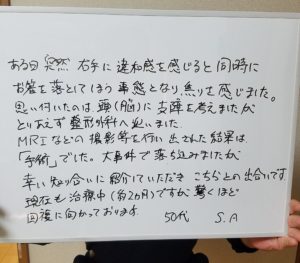 ある日 突然 右手に 違和感を感じると同時に
お箸を落としてしまう 事態となり 焦りを感じました。
思い付いたのは、頭(脳)に 支障を考えましたが
とりあえず 整形外科へ 通いました。
MRIなどの 撮影等を行い 出された結果は
「手術」でした。大事件で 落ち込みましたが
幸い 知り合いに 紹介していただき こちらとの出会いです
現在も 治療中(約2カ月)ですが 驚くほど
回復に向かっております
50代 S.A